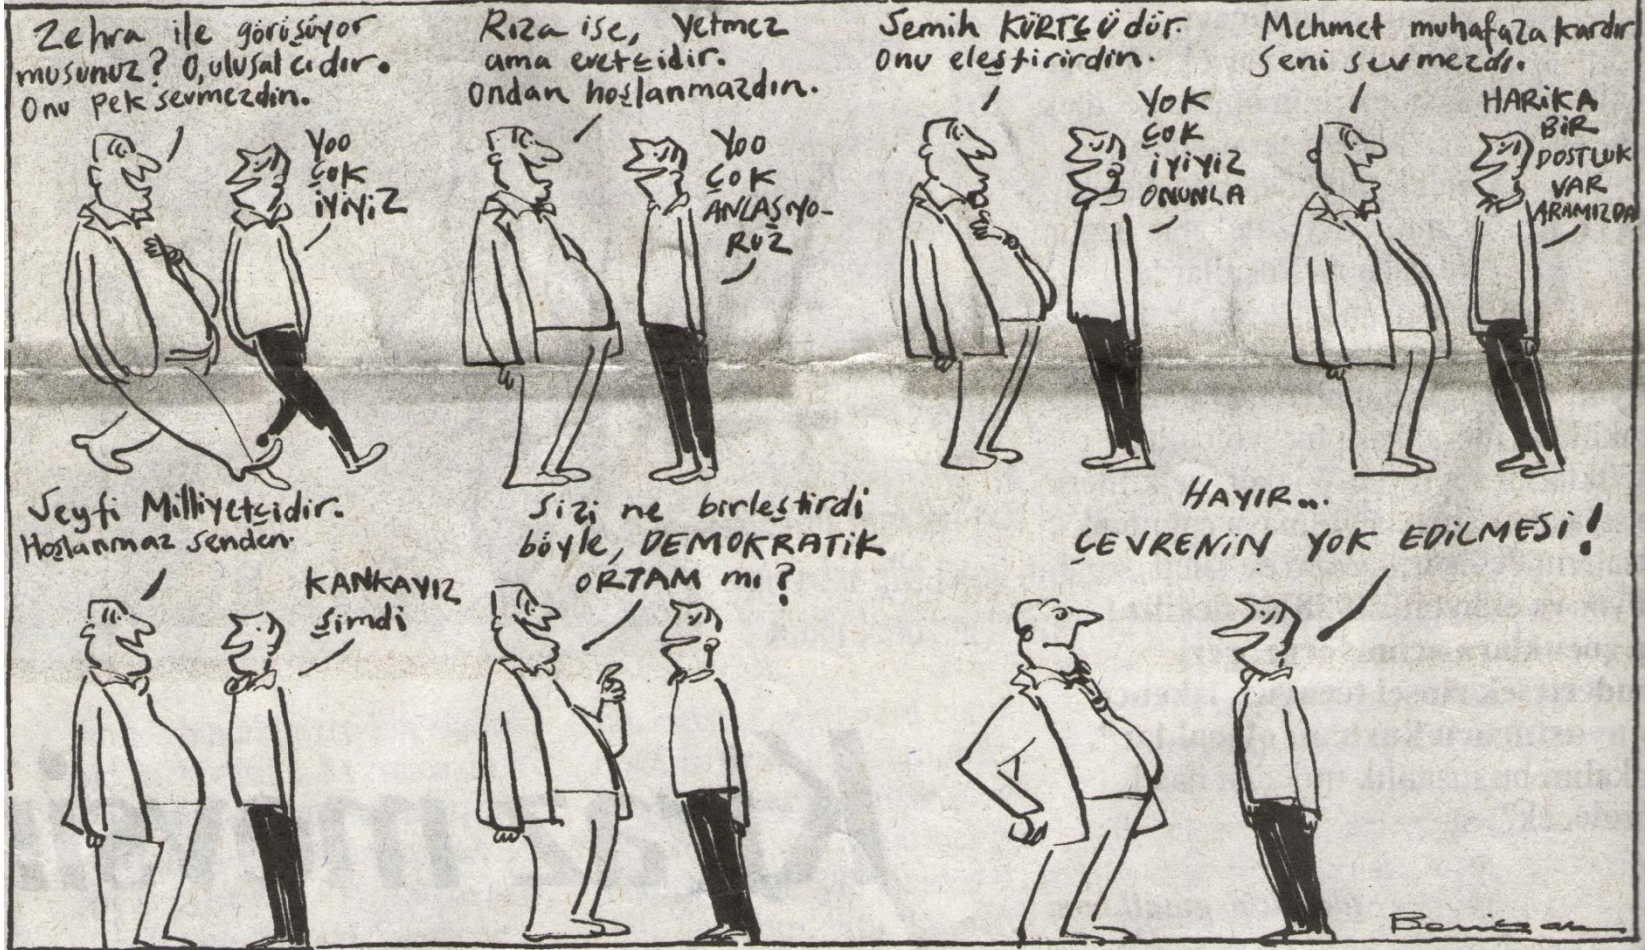 Zehra ile görüşüyor
musunuz? O, ulusalcıdır.
Onu pek sevmezdin.
Yoo
çok
iyiyiz
Rıza ise, Yetmez
ama evetçidir.
Ondan hoşlanmazdın.
Yoo
çok
ANLAŞIYO-
RUZ
Semih KÜRTÇÜdür.
Onu eleştirirdin.
YOK
çok
iyiyiz
ONUNLA
Mehmet muhafazakardır
Seni sevmezdi.
HARİKA
BİR
DOSTLUK
VAR
ARAMIZDA
Seyfi Milliyetçidir.
Hoşlanmaz senden.
KANKAYIZ
şimdi
Sizi ne birleştirdi
böyle, DEMOKRATİK
ORTAM mı?
HAYIR...
ÇEVRENİN YOK EDİLMESİ!